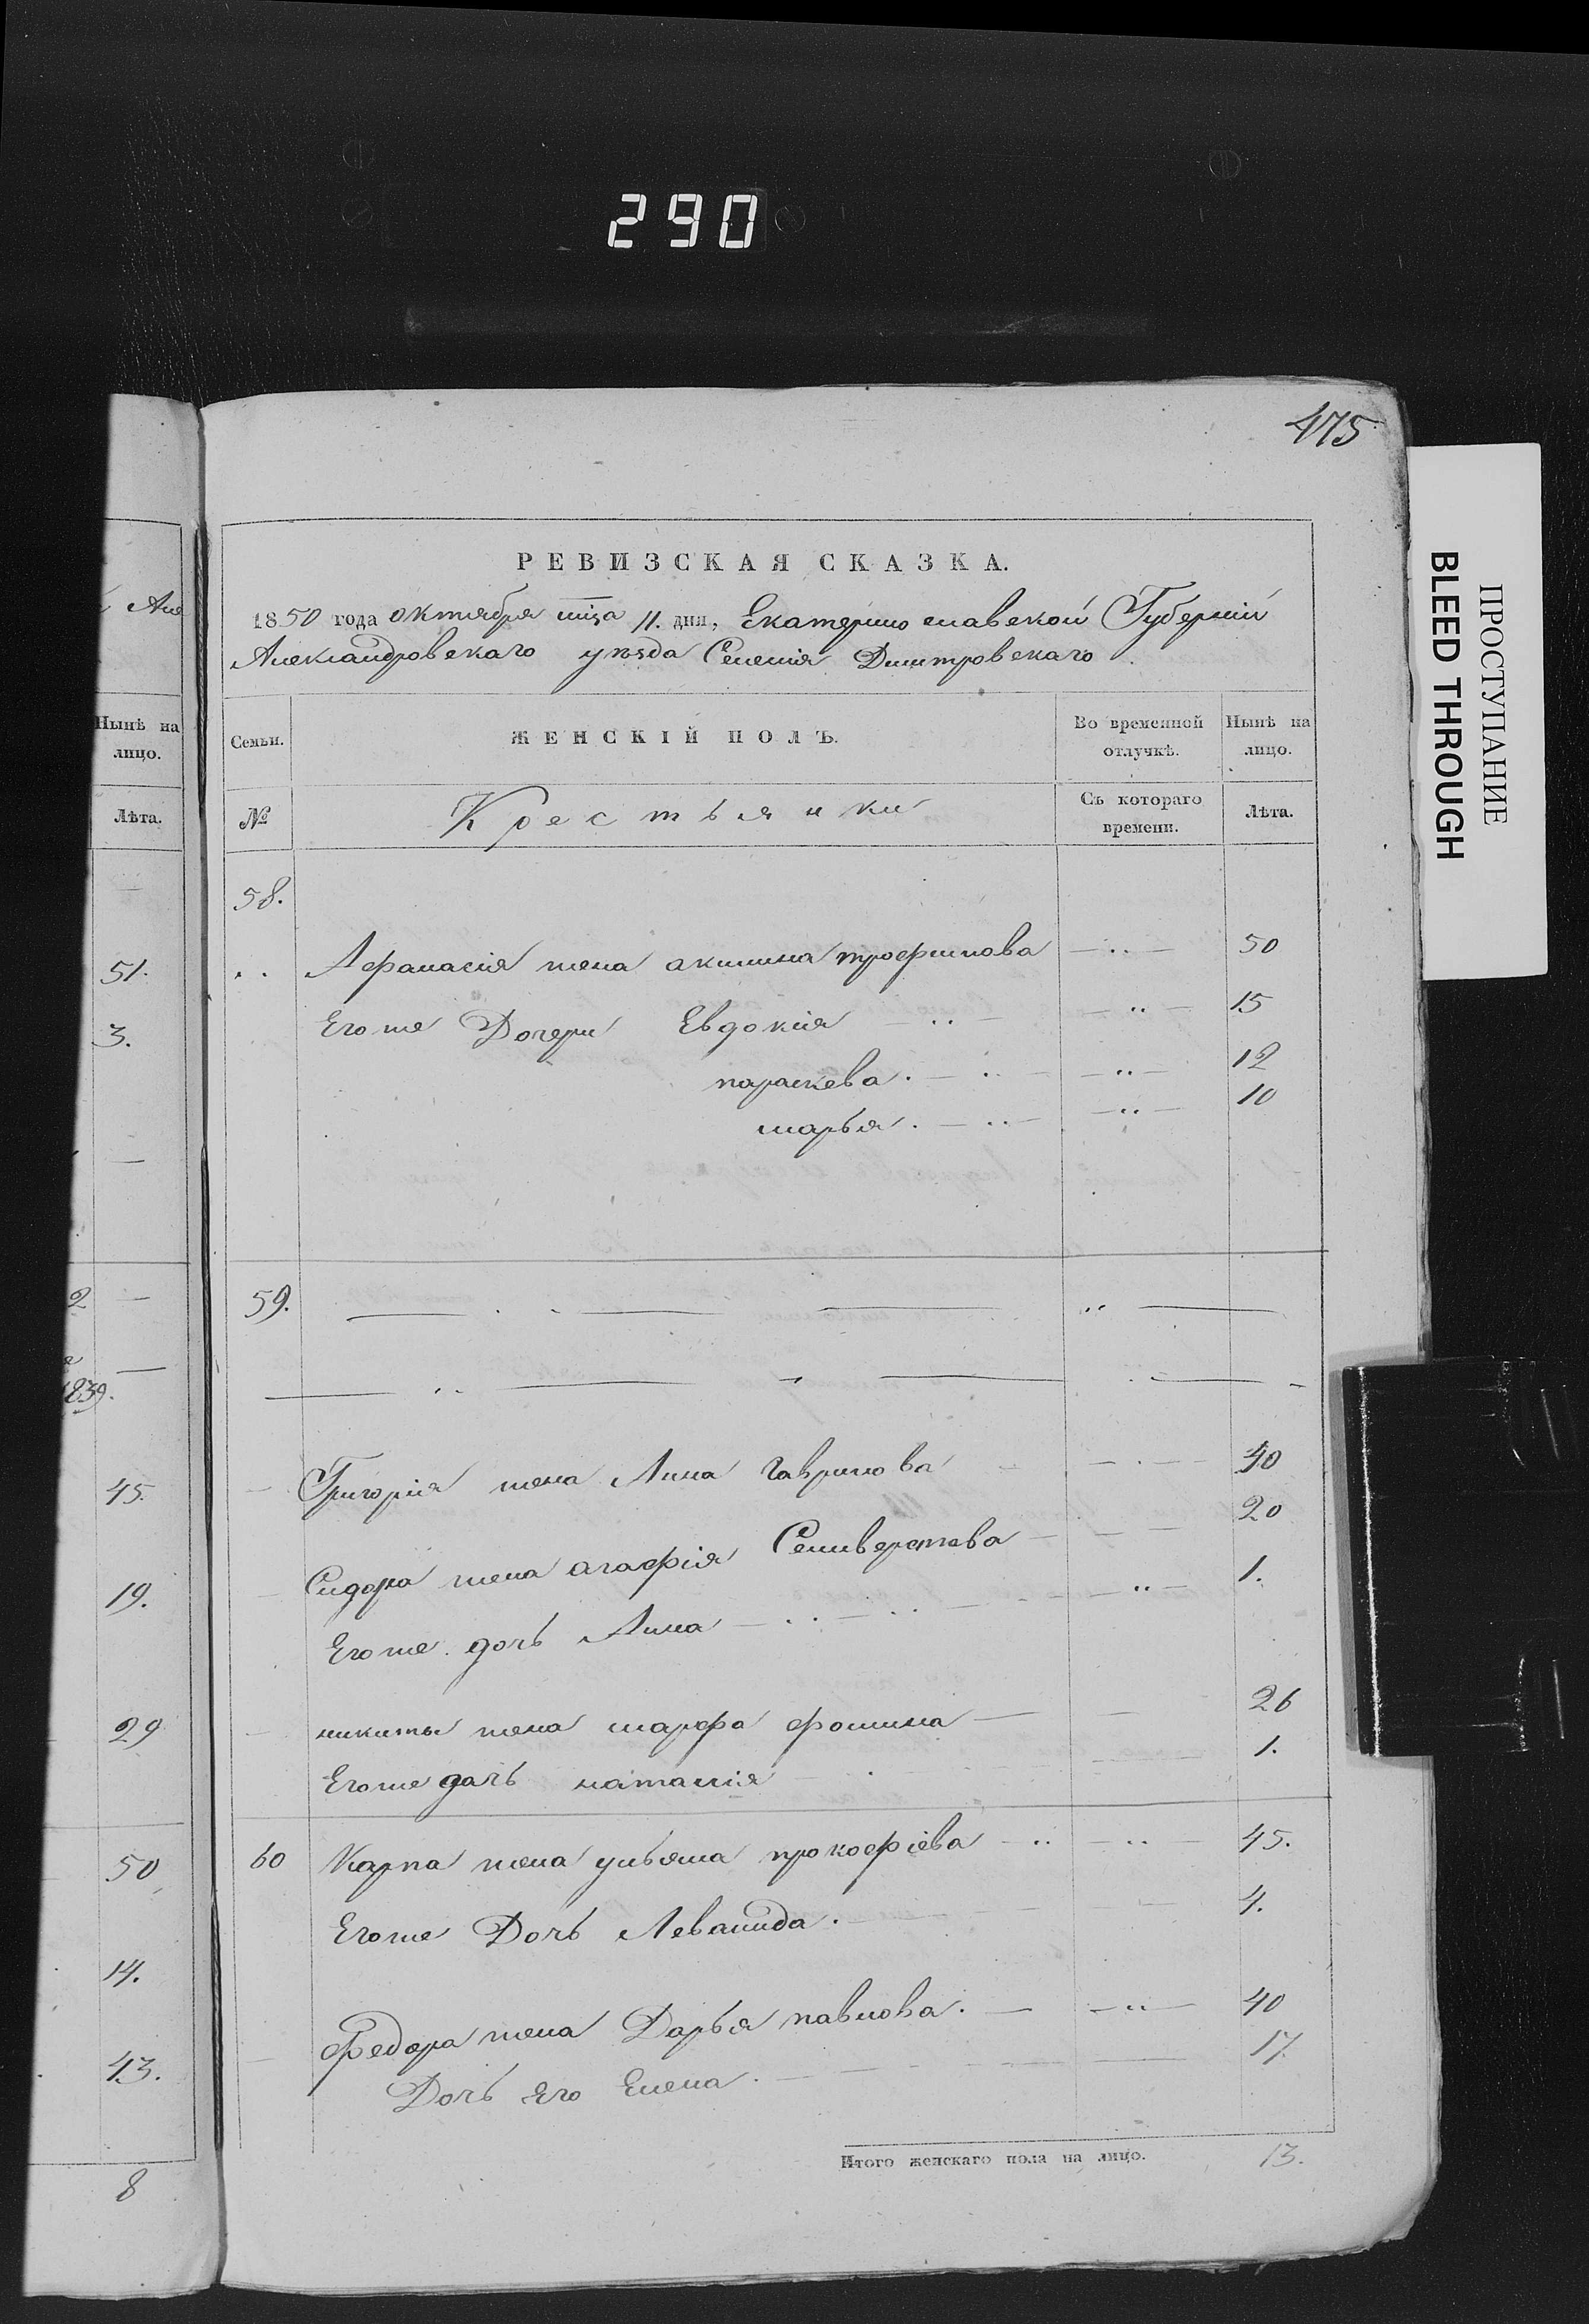 290
475
ПРОСТУПАНИЕ
BLEED THROUGH
РЕВИЗСКАЯ СКАЗКА.
1850 года октября мца 11. дня, Екатеринославской Губерніи
Александровскаго уѣзда Селенія Дмитровскаго.
Семьи. ЖЕНСКІЙ ПОЛЪ. Во временной отлучкѣ. Нынѣ на лицо.
№ Крестьянки Съ котораго времени. Лѣта.
58.
Афанасія жена акилина трофимова 50
Егоже Дочери Евдокія 15
параскева. 12
марья. 10
59.
Григорія жена Анна Гаврилова 40
Сидора жена агафія Селиверстова 20
Егоже дочь Анна 1.
никиты жена марфа фомина 26
Егоже дочь наталія 1.
60 Карпа жена ульяна прокофіева 45.
Егоже Дочь Леванида. 4.
Федора жена Дарья павлова. 40
Дочь Его Елена. 17
Итого женскаго пола на лицо. 13.
Але
Нынѣ на
лицо.
Лѣта.
51.
3.
2
1839.
45.
19.
29
50
14.
43.
8